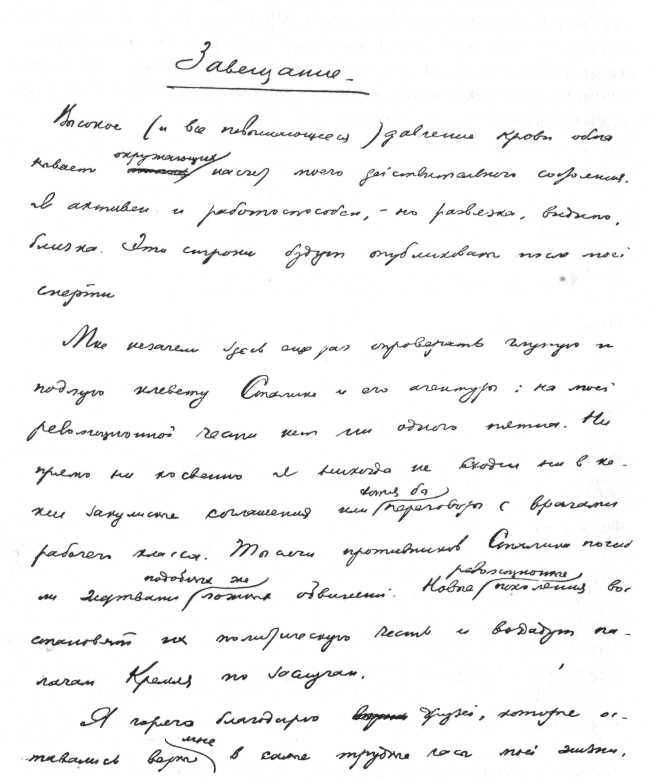 Завещание.
Высокое (и все повышающееся) давление крови обма
нывает окружающих насчет моего действительного состояния.
Я активен и работоспособен, - но развязка, видимо,
близка. Эти строки будут опубликованы после моей
смерти
Мне незачем здесь еще раз опровергать глупую и
подлую клевету Сталина и его агентуры: на моей
революционной чести нет ни одного пятна. Ни
прямо ни косвенно я никогда не входил ни в ка-
кие закулисные соглашения или хотя бы переговоры с врагами
рабочего класса. Тысячи противников Сталина погиб
ли жертвами подобных же ложных обвинений. Новые революционные поколения вос-
становят их политическую честь и воздадут па-
лачам Кремля по заслугам.
Я горячо благодарю друзей, которые ос-
тавались верны мне в самые трудные часы моей жизни.